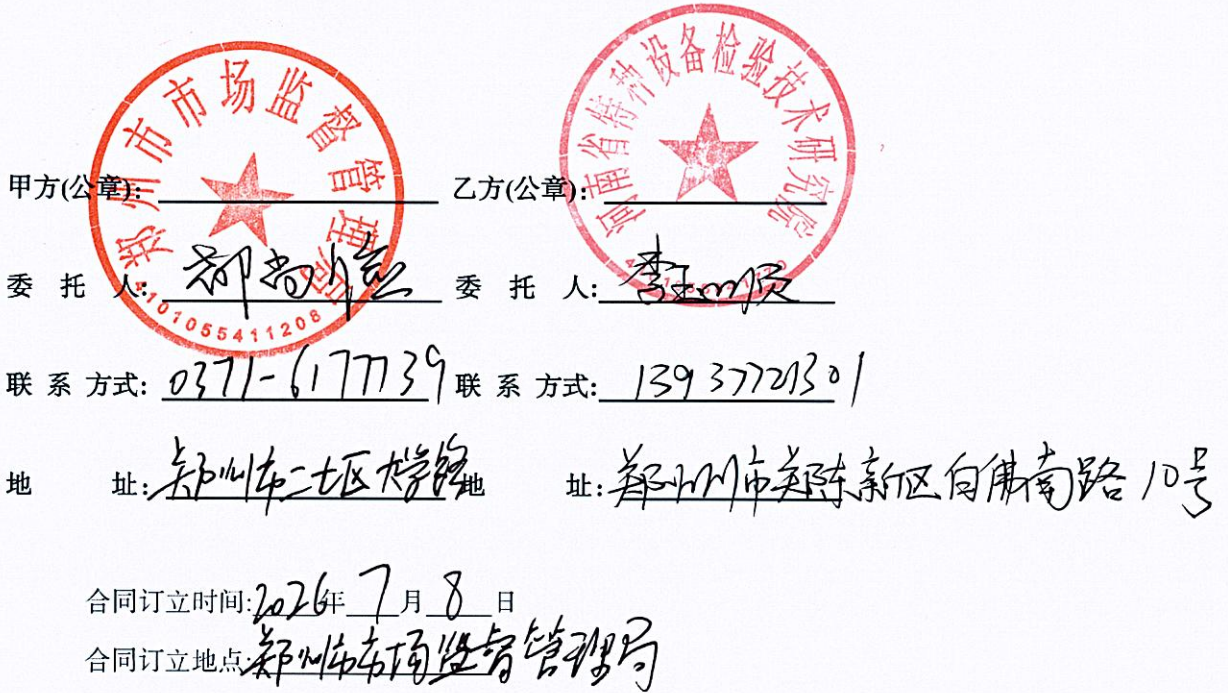 郑州市市场监督管理局
4101055411208
河南省特种设备检验技术研究院
甲方(公章): 乙方(公章):
委 托 人: 委 托 人:
联 系 方式: 0371-6177739 联 系 方式: 13937721301
地 址: 郑州市二七区大学路 地 址: 郑州市郑东新区白佛南路10号
合同订立时间: 2026年 7 月 8 日
合同订立地点: 郑州市市场监督管理局